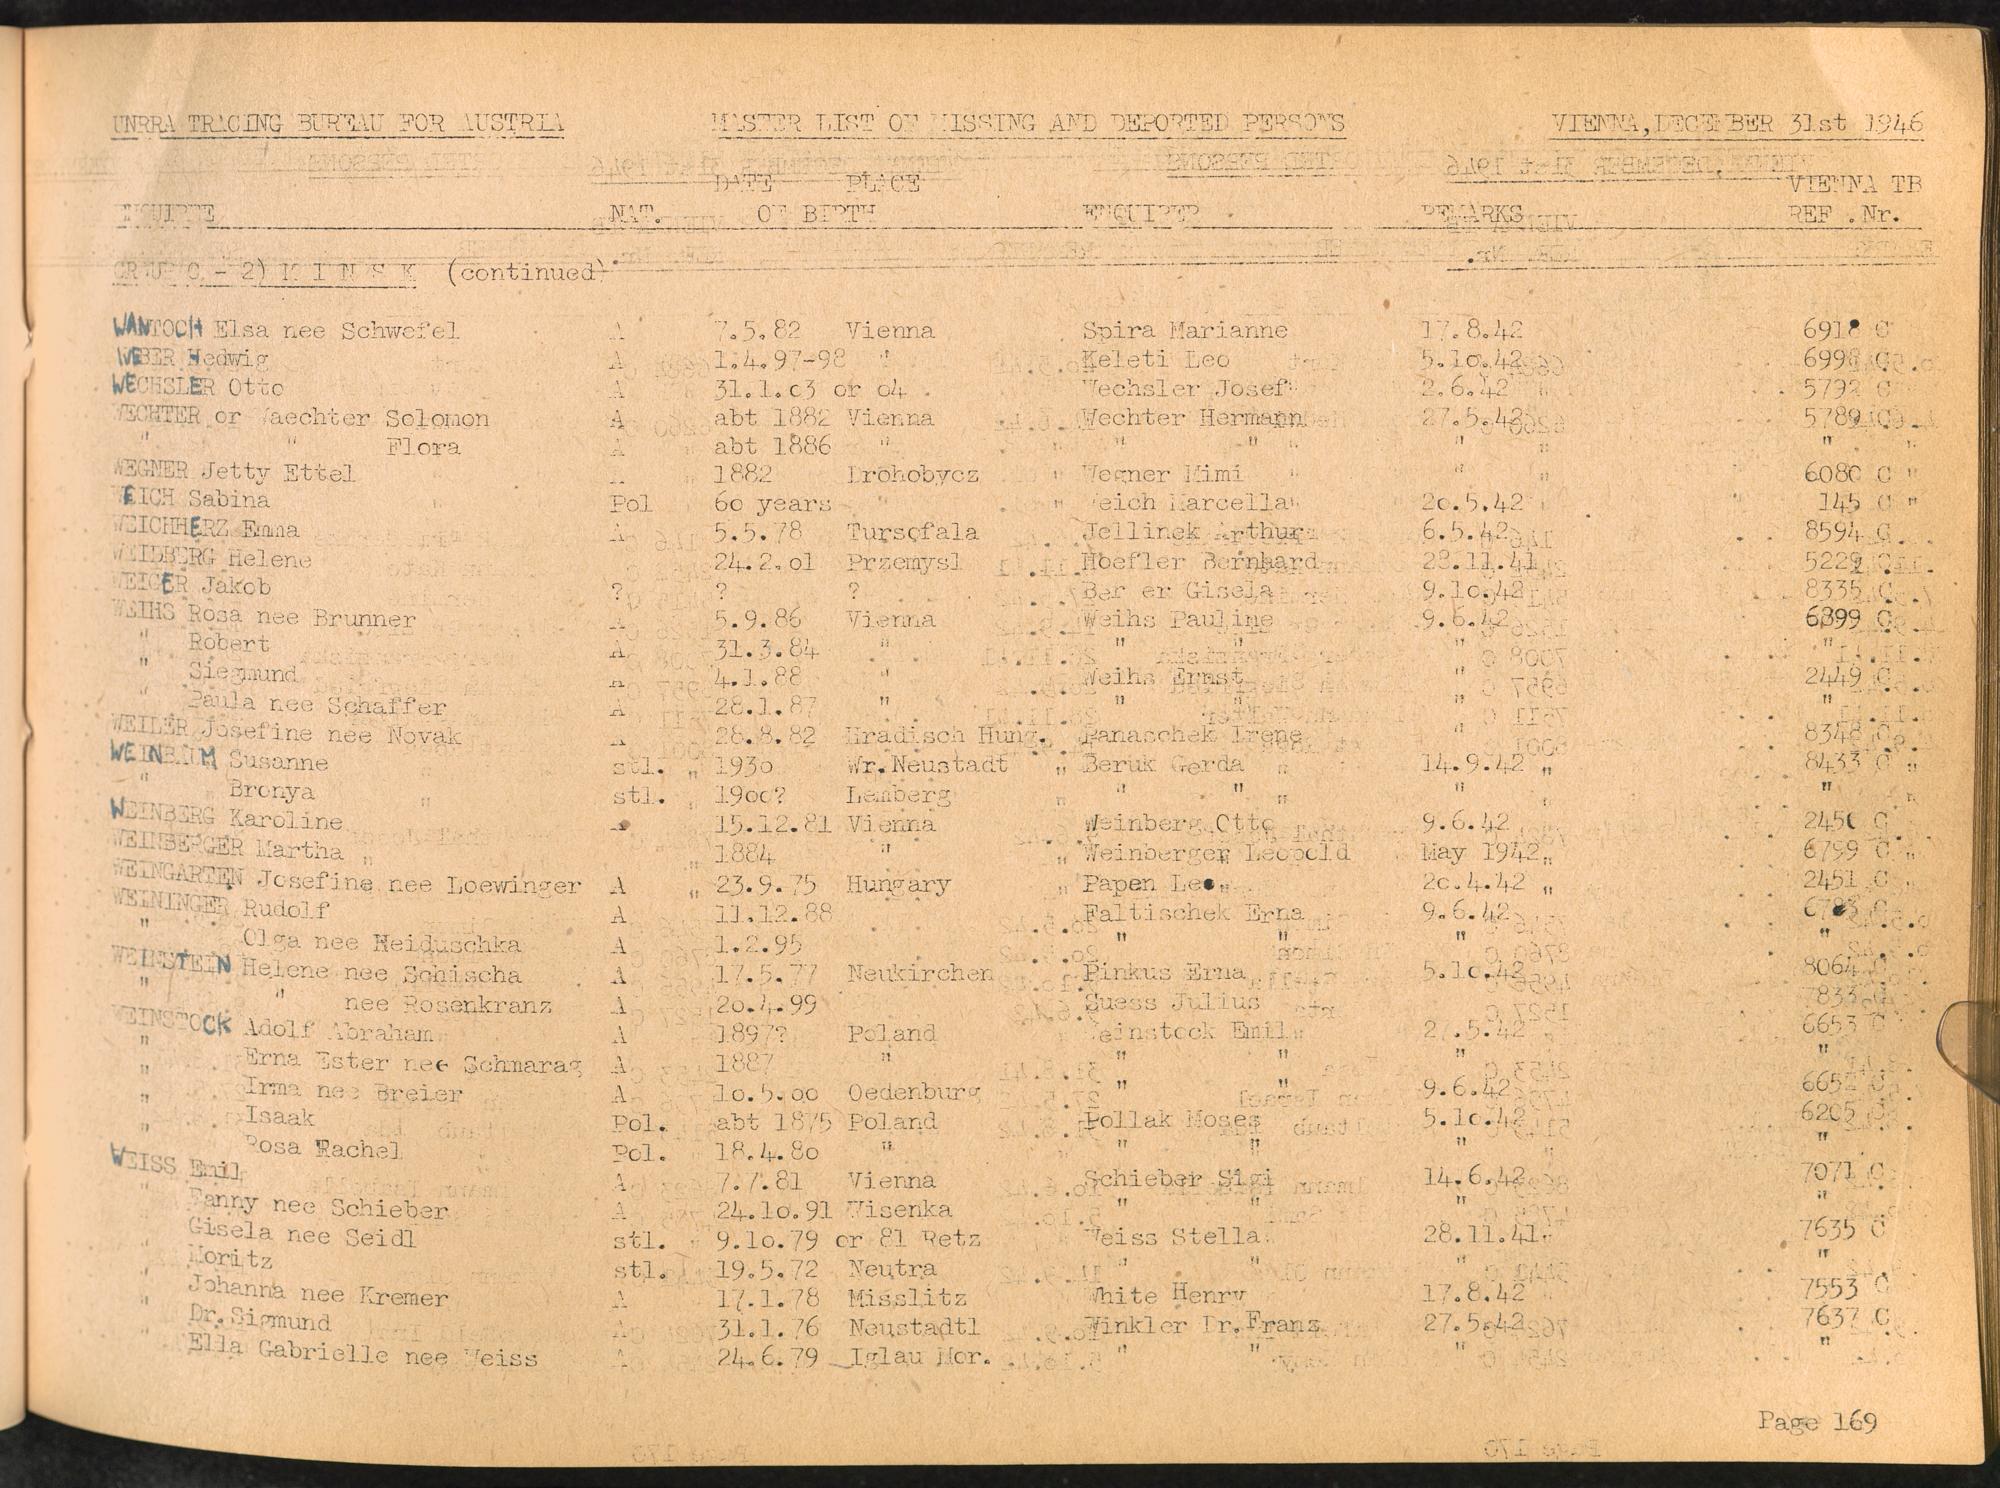 UNRRA TRACING BUREAU FOR AUSTRIA MASTER LIST OF MISSING AND DEPORTED PERSONS VIENNA, DECEMBER 31st 1946
DATE PLACE VIENNA TB
ENQUIREE NAT. OF BIRTH ENQUIRER REMARKS REF. Nr.
GROUP C - 2) M I N S K (continued)
WANTOCH Elsa nee Schwefel A 7.5.82 Vienna Spira Marianne 17.8.42 6918 C
WEBER Hedwig A 1.4.97-98 " Keleti Leo 5.10.42 6998 C
WECHSLER Otto A 31.1.03 or 04 Wechsler Josef 2.6.42 5792 C
WECHTER or Waechter Solomon A abt 1882 Vienna Wechter Hermann 27.5.42 5789 C
" " Flora A abt 1886 " " " " "
WEGNER Jetty Ettel A 1882 Drohobycz Wegner Mimi " 6080 C
WEICH Sabina Pol 60 years Weich Marcella 20.5.42 145 C
WEICHHERZ Emma A 5.5.78 Tursofala Jellinek Arthur 6.5.42 8594 C
WEIDBERG Helene 24.2.01 Przemysl Hoefler Bernhard 28.11.41 5229 C
WEIGER Jakob ? ? ? Berger Gisela 9.10.42 8335 C
WEIHS Rosa nee Brunner A 5.9.86 Vienna Weihs Pauline 9.6.42 6899 C
" Robert A 31.3.84 " " " " "
" Siegmund A 4.1.88 " Weihs Ernst " 2449 C
" Paula nee Schaffer A 28.1.87 " " " " "
WEILER Josefine nee Novak A 28.8.82 Hradisch Hung. Panaschek Irene " 8348 C
WEINBAUM Susanne stl. 1930 Wr.Neustadt Beruk Gerda 14.9.42 8433 C
" Bronya stl. 1900? Lemberg " " " "
WEINBERG Karoline A 15.12.81 Vienna Weinberg Otto 9.6.42 2450 C
WEINBERGER Martha 1884 " Weinberger Leopold May 1942 6799 C
WEINGARTEN Josefine nee Loewinger A 23.9.75 Hungary Papen Leo 20.4.42 2451 C
WEININGER Rudolf A 11.12.88 Faltischek Erna 9.6.42 6783 C
" Olga nee Heiduschka A 1.2.95 " " " "
WEINSTEIN Helene nee Schischa A 17.5.77 Neukirchen Pinkus Erna 5.10.42 8064 C
" " nee Rosenkranz A 20.4.99 Suess Julius 7833 C
WEINSTOCK Adolf Abraham A 1897? Poland Weinstock Emil 27.5.42 6653 C
" Erna Ester nee Schmarag A 1887 " " " " "
" Irma nee Breier A 10.5.00 Oedenburg " " 9.6.42 6652 C
" Isaak Pol. abt 1875 Poland Pollak Moses 5.10.42 6205 C
" Rosa Rachel Pol. 18.4.80 " " " " "
WEISS Emil A 7.7.81 Vienna Schieber Sigi 14.6.42 7071 C
" Fanny nee Schieber A 24.10.91 Wisenka " " " "
" Gisela nee Seidl stl. 9.10.79 or 81 Retz Weiss Stella 28.11.41 7635 C
" Moritz stl. 19.5.72 Neutra " " " "
" Johanna nee Kremer A 17.1.78 Misslitz White Henry 17.8.42 7553 C
" Dr.Sigmund A 31.1.76 Neustadtl Winkler Dr.Franz 27.5.42 7637 C
" Ella Gabrielle nee Weiss A 24.6.79 Iglau Mor. " " " "
Page 169